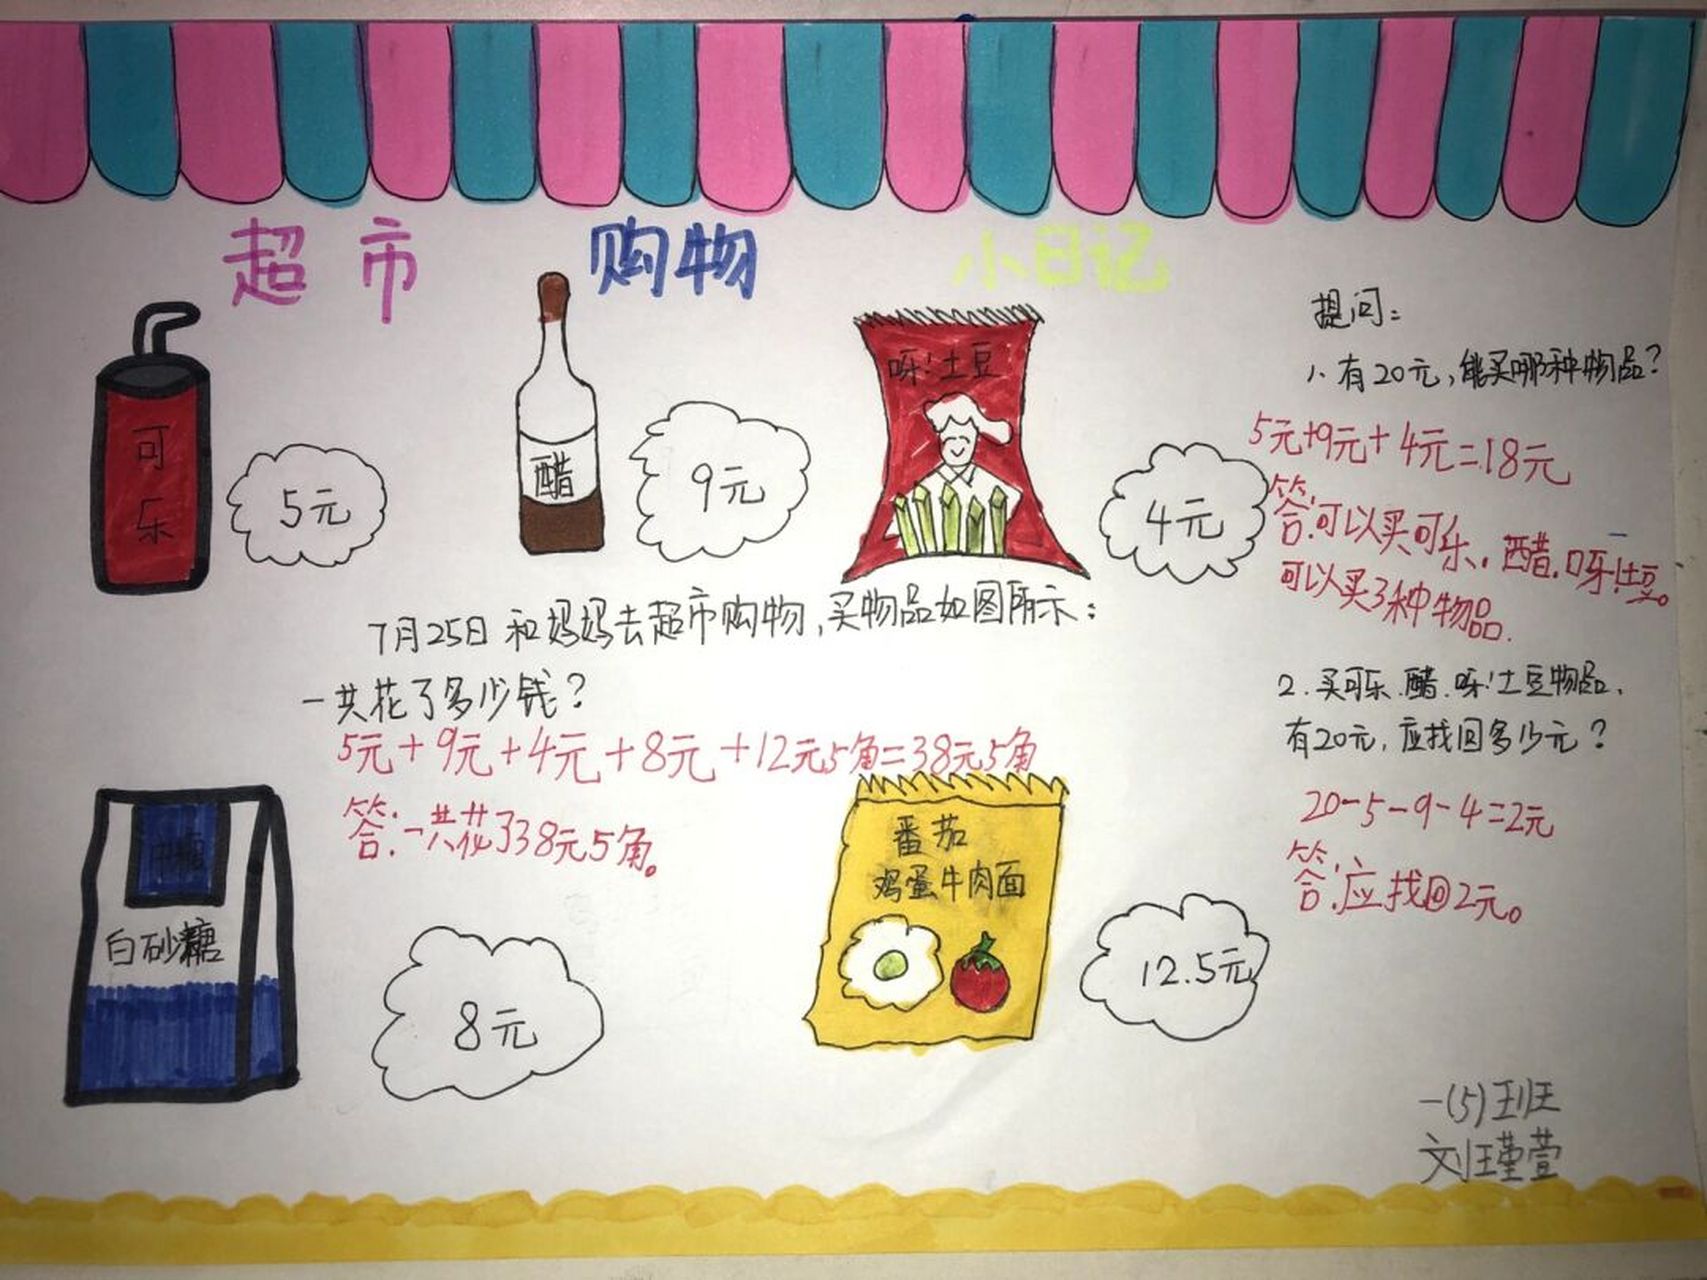 超市 购物 小日记
可乐
5元
醋
9元
呀!土豆
4元
7月25日和妈妈去超市购物,买物品如图所示:
一共花了多少钱?
5元+9元+4元+8元+12元5角=38元5角
答:一共花了38元5角。
白砂糖
8元
番茄
鸡蛋牛肉面
12.5元
提问:
1、有20元,能买哪种物品?
5元+9元+4元=18元
答:可以买可乐。醋.呀!土豆。
可以买3种物品.
2.买可乐.醋.呀!土豆物品.
有20元,应找回多少元?
20-5-9-4=2元
答:应找回2元。
一(5)班
刘瑾萱